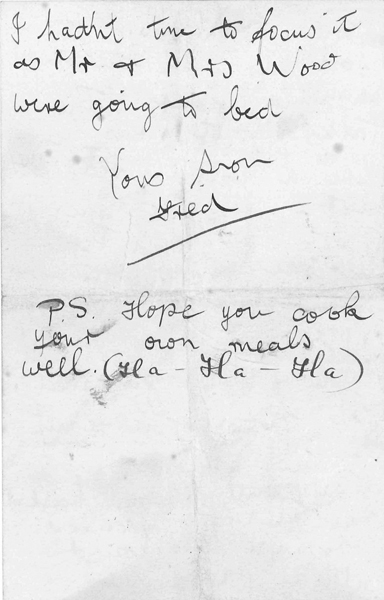 I hadn't time to focus it
as Mr & Mrs Wood
were going to bed
Yours Aron
Fred
P.S. Hope you cook
your own meals
well. (Ha - Ha - Ha)